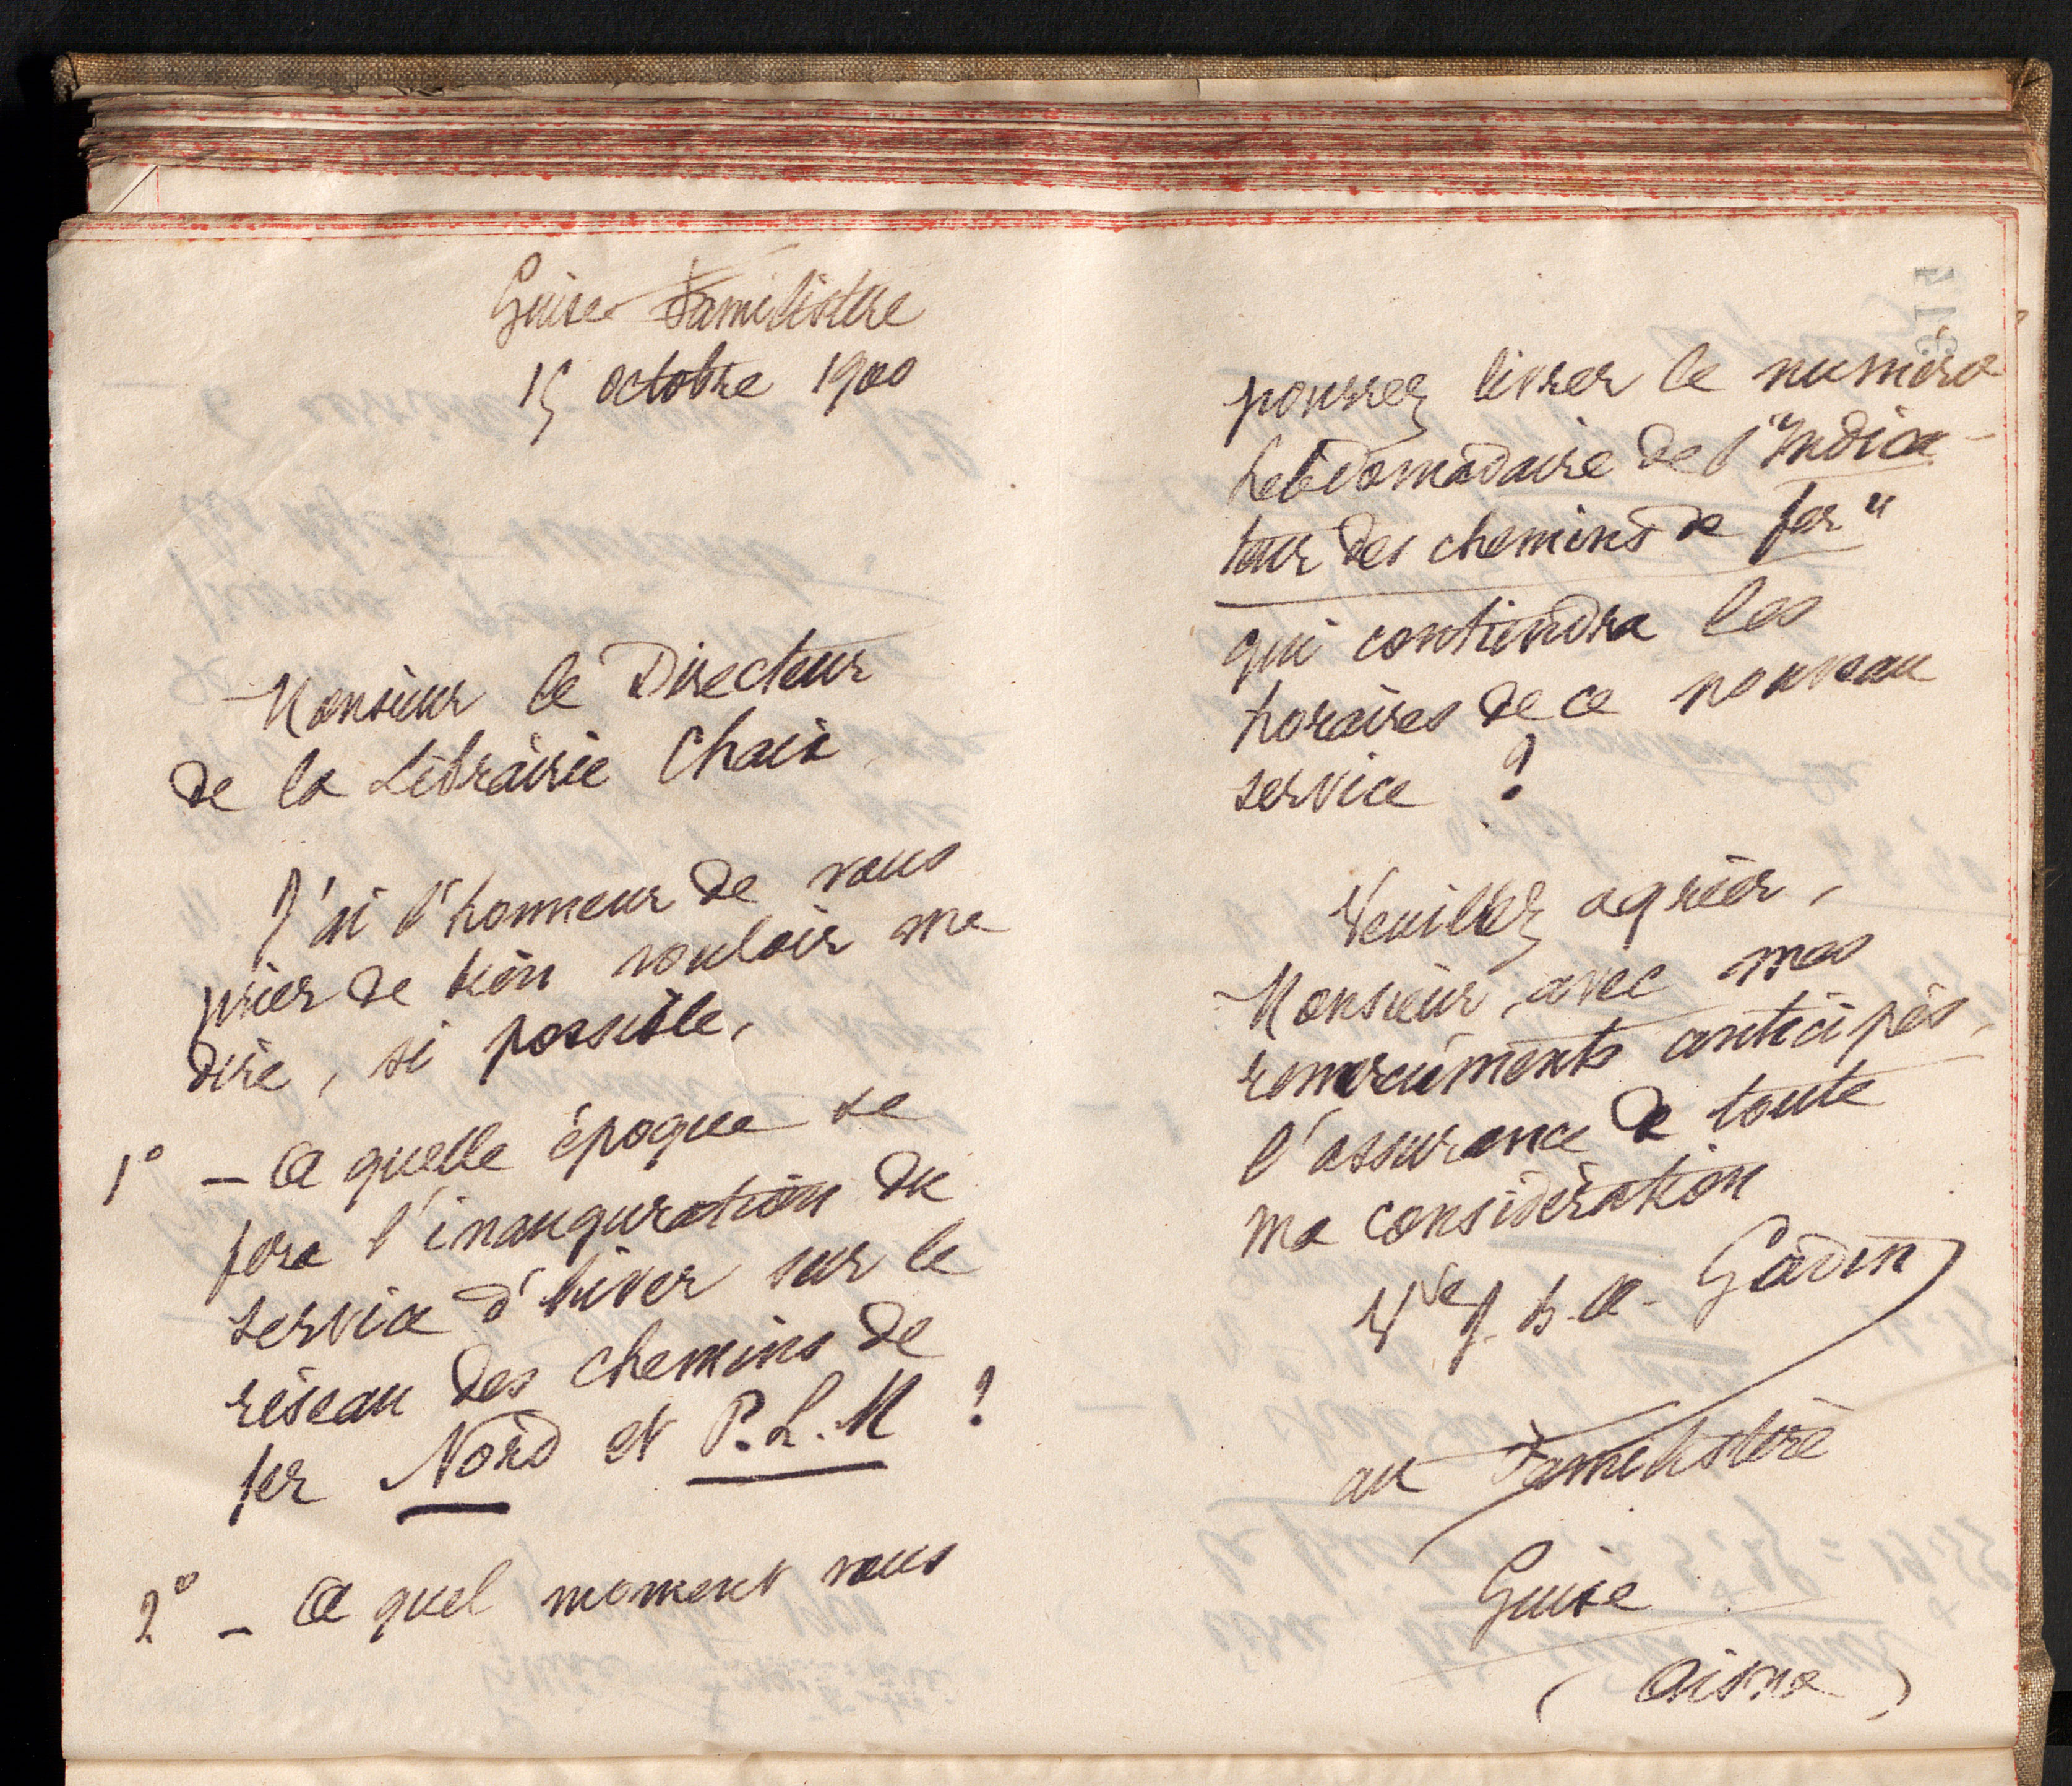 Guise Familistère
15 octobre 1900
Monsieur le Directeur
de la Librairie Chaix
J'ai l'honneur de vous
prier de bien vouloir me
dire, si possible,
1° - A quelle époque se
fera l'inauguration du
service d'hiver sur le
réseau des chemins de
fer Nord et P.L.M ?
2° - A quel moment vous
pourrez livrer le numéro
hebdomadaire de l'"Indica-
teur des chemins de fer"
qui contiendra les
horaires de ce nouveau
service ?
Veuillez agréer,
Monsieur, avec mes
remerciements anticipés,
l'assurance de toute
ma considération
Vve J. B. A. Godin
au Familistère
Guise
(Aisne)